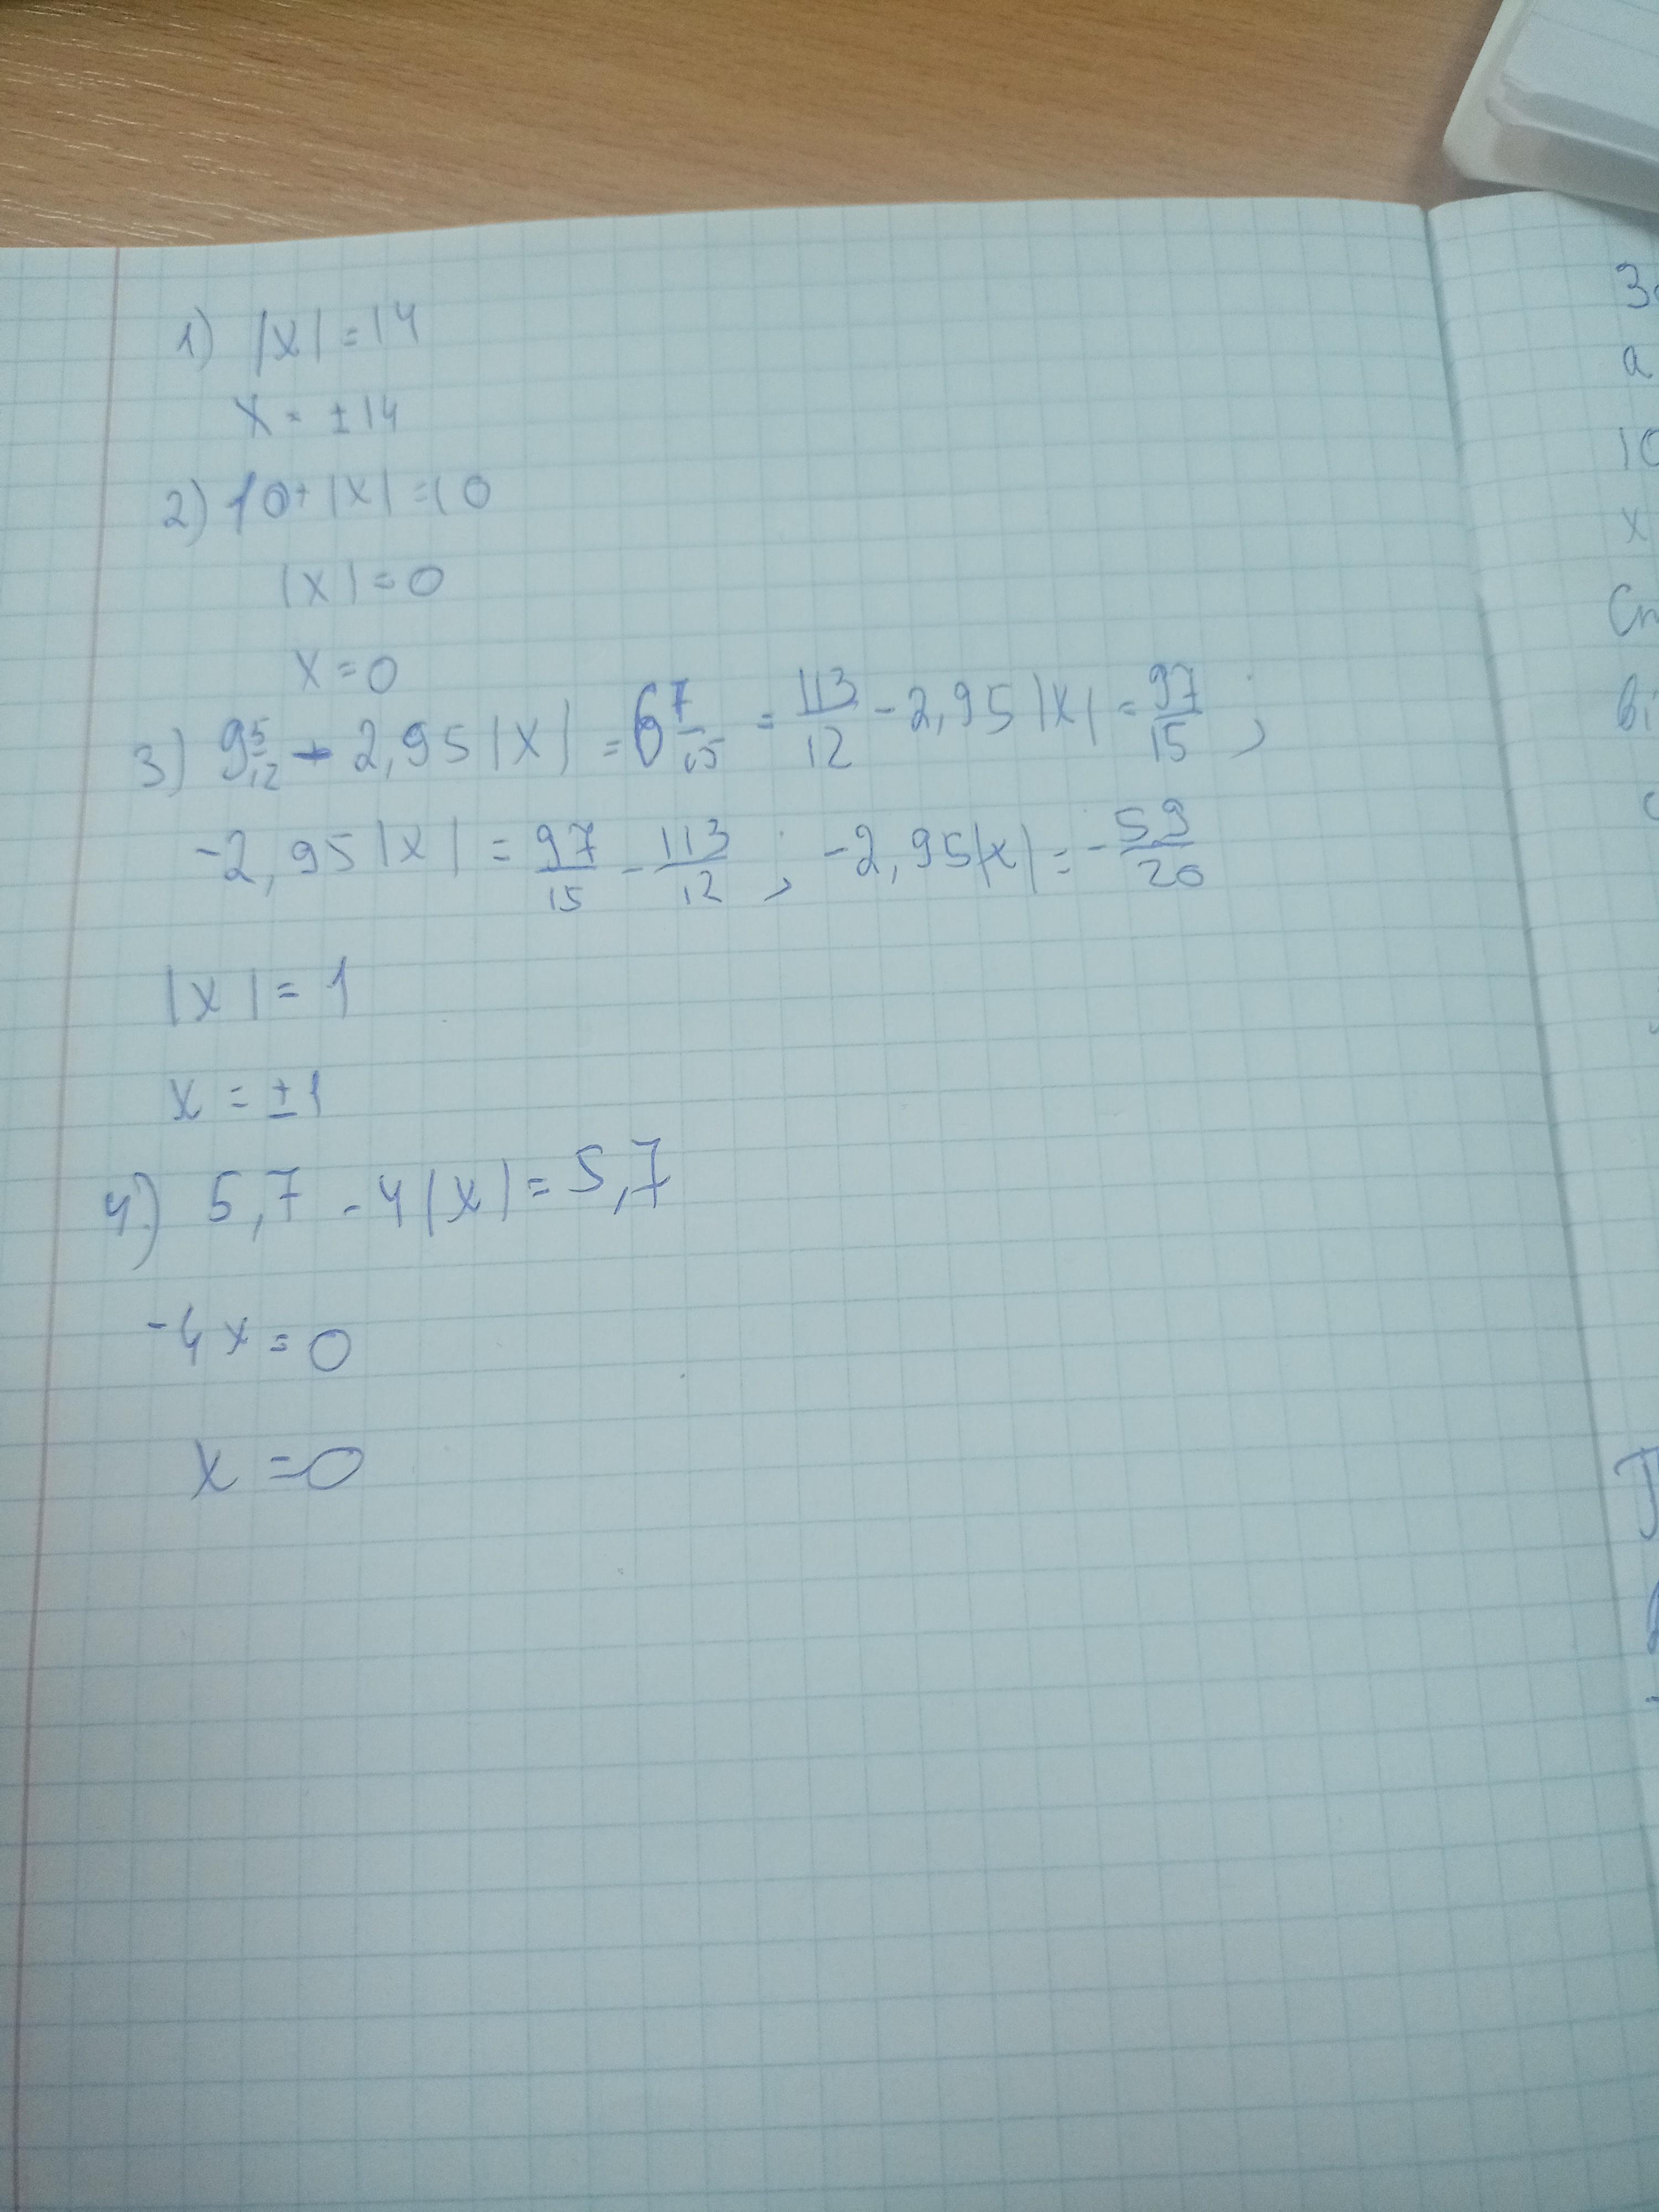 1) |x| = 14
x = ±14
2) 10 + |x| = 10
|x| = 0
x = 0
3) 9 5/12 - 2,95 |x| = 6 7/15 = 113/12 - 2,95 |x| = 97/15 ;
-2,95 |x| = 97/15 - 113/12 ; -2,95|x| = - 59/20
|x| = 1
x = ±1
4) 5,7 - 4|x| = 5,7
-4x = 0
x = 0